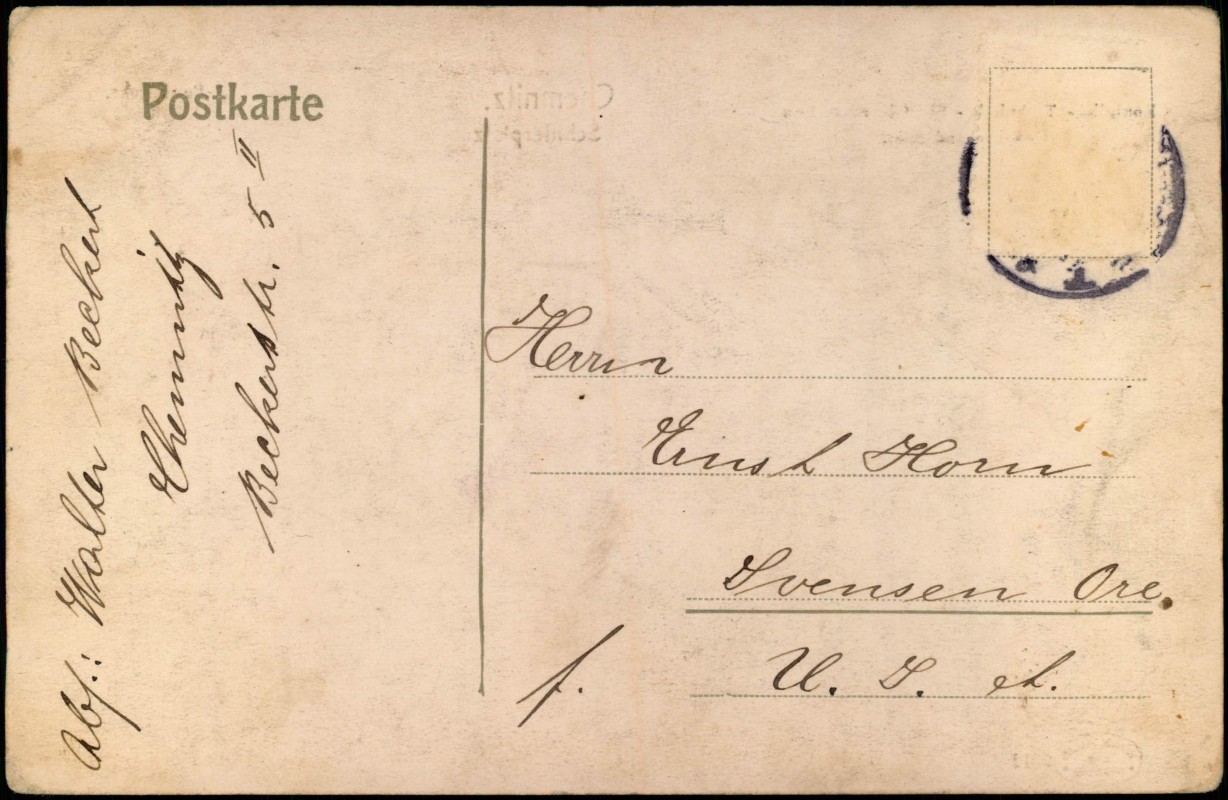 Postkarte
Abs.: Walter Beckert
Chemnitz
Beckerstr. 5 II
Herrn
Ernst Horn
Svensen Ore.
f. U. S. A.
Chemnitz.
Schillerplatz